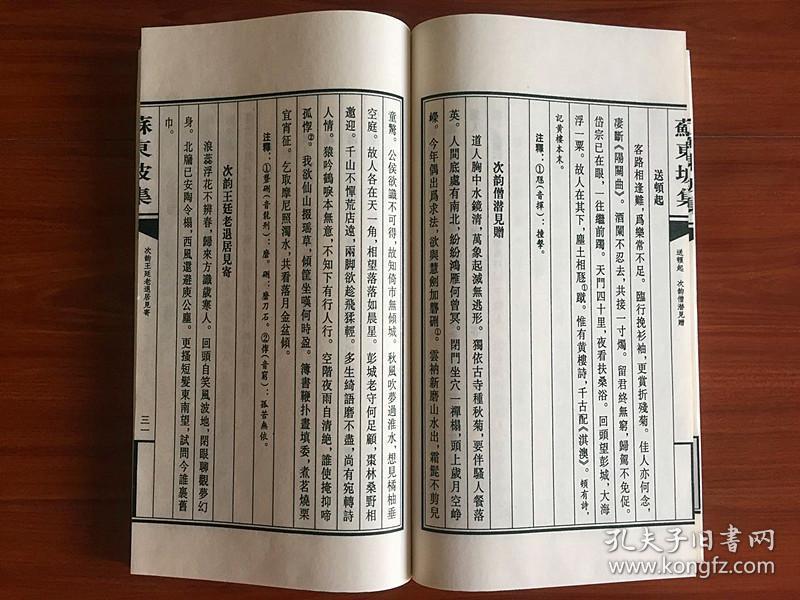 蘇東坡集
送頓起 次韵僧潛見贈
送頓起
客路相逢難，爲樂常不足。臨行挽衫袖，更賞折殘菊。佳人亦何念，
凄斷《陽關曲》。酒闌不忍去，共接一寸燭。留君終無窮，歸駕不免促。
岱宗已在眼，一往繼前躅。天門四十里，夜看扶桑浴。回頭望彭城，大海
浮一粟。故人在其下，塵土相豗①蹴。惟有黄樓詩，千古配《淇澳》。頓有詩，
記黄樓本末。
注釋：①豗(音揮)：撞擊。
次韵僧潛見贈
道人胸中水鏡清，萬象起滅無逃形。獨依古寺種秋菊，要伴騷人餐落
英。人間底處有南北，紛紛鴻雁何曾冥。閉門坐穴一禪榻，頭上歲月空崢
嶸。今年偶出爲求法，欲與慧劍加礱硎①。雲衲新磨山水出，霜髭不剪兒
童驚。公侯欲識不可得，故知倚市無傾城。秋風吹夢過淮水，想見橘柚垂
空庭。故人各在天一角，相望落落如晨星。彭城老守何足顧，棗林桑野相
邀迎。千山不憚荒店遠，兩脚欲趁飛猱輕。多生綺語磨不盡，尚有宛轉詩
人情。猿吟鶴唳本無意，不知下有行人行。空階夜雨自清絶，誰使掩抑啼
孤惸②。我欲仙山掇瑶草，傾筐坐嘆何時盈。簿書鞭扑晝填委，煮茗燒栗
宜宵征。乞取摩尼照濁水，共看落月金盆傾。
注釋：①礱硎(音龍刑)：磨。硎：磨刀石。②惸(音窮)：孤苦無依。
次韵王廷老退居見寄
浪蕊浮花不辨春，歸來方識歲寒人。回頭自笑風波地，閉眼聊觀夢幻
身。北牖已安陶令榻，西風還避庾公塵。更搔短髮東南望，試問今誰裹舊
巾。
蘇東坡集
次韵王廷老退居見寄
三一
孔夫子旧书网
kongfz.com